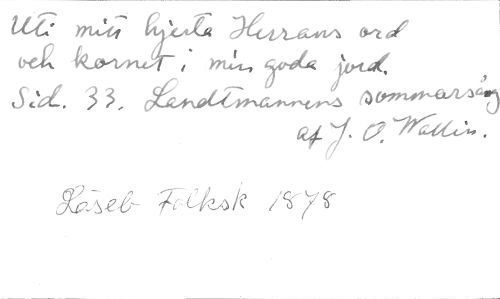 Uti mitt hjerta Herrans ord
och kornet i min goda jord.
Sid. 33. Landtmannens sommarsång
af J. O. Wallin.
Läseb Folksk 1878